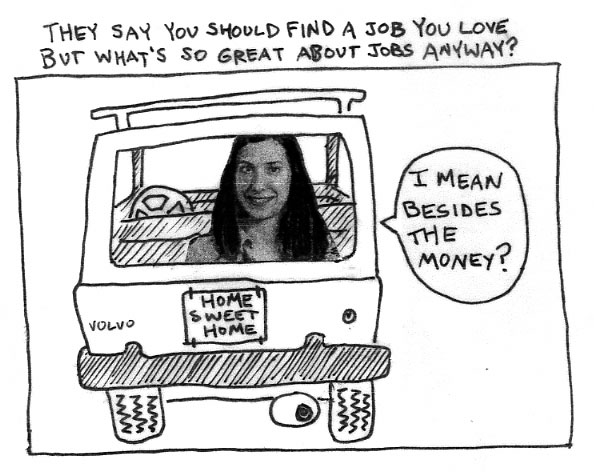 THEY SAY YOU SHOULD FIND A JOB YOU LOVE
BUT WHAT'S SO GREAT ABOUT JOBS ANYWAY?
I MEAN
BESIDES
THE
MONEY?
HOME
SWEET
HOME
VOLVO